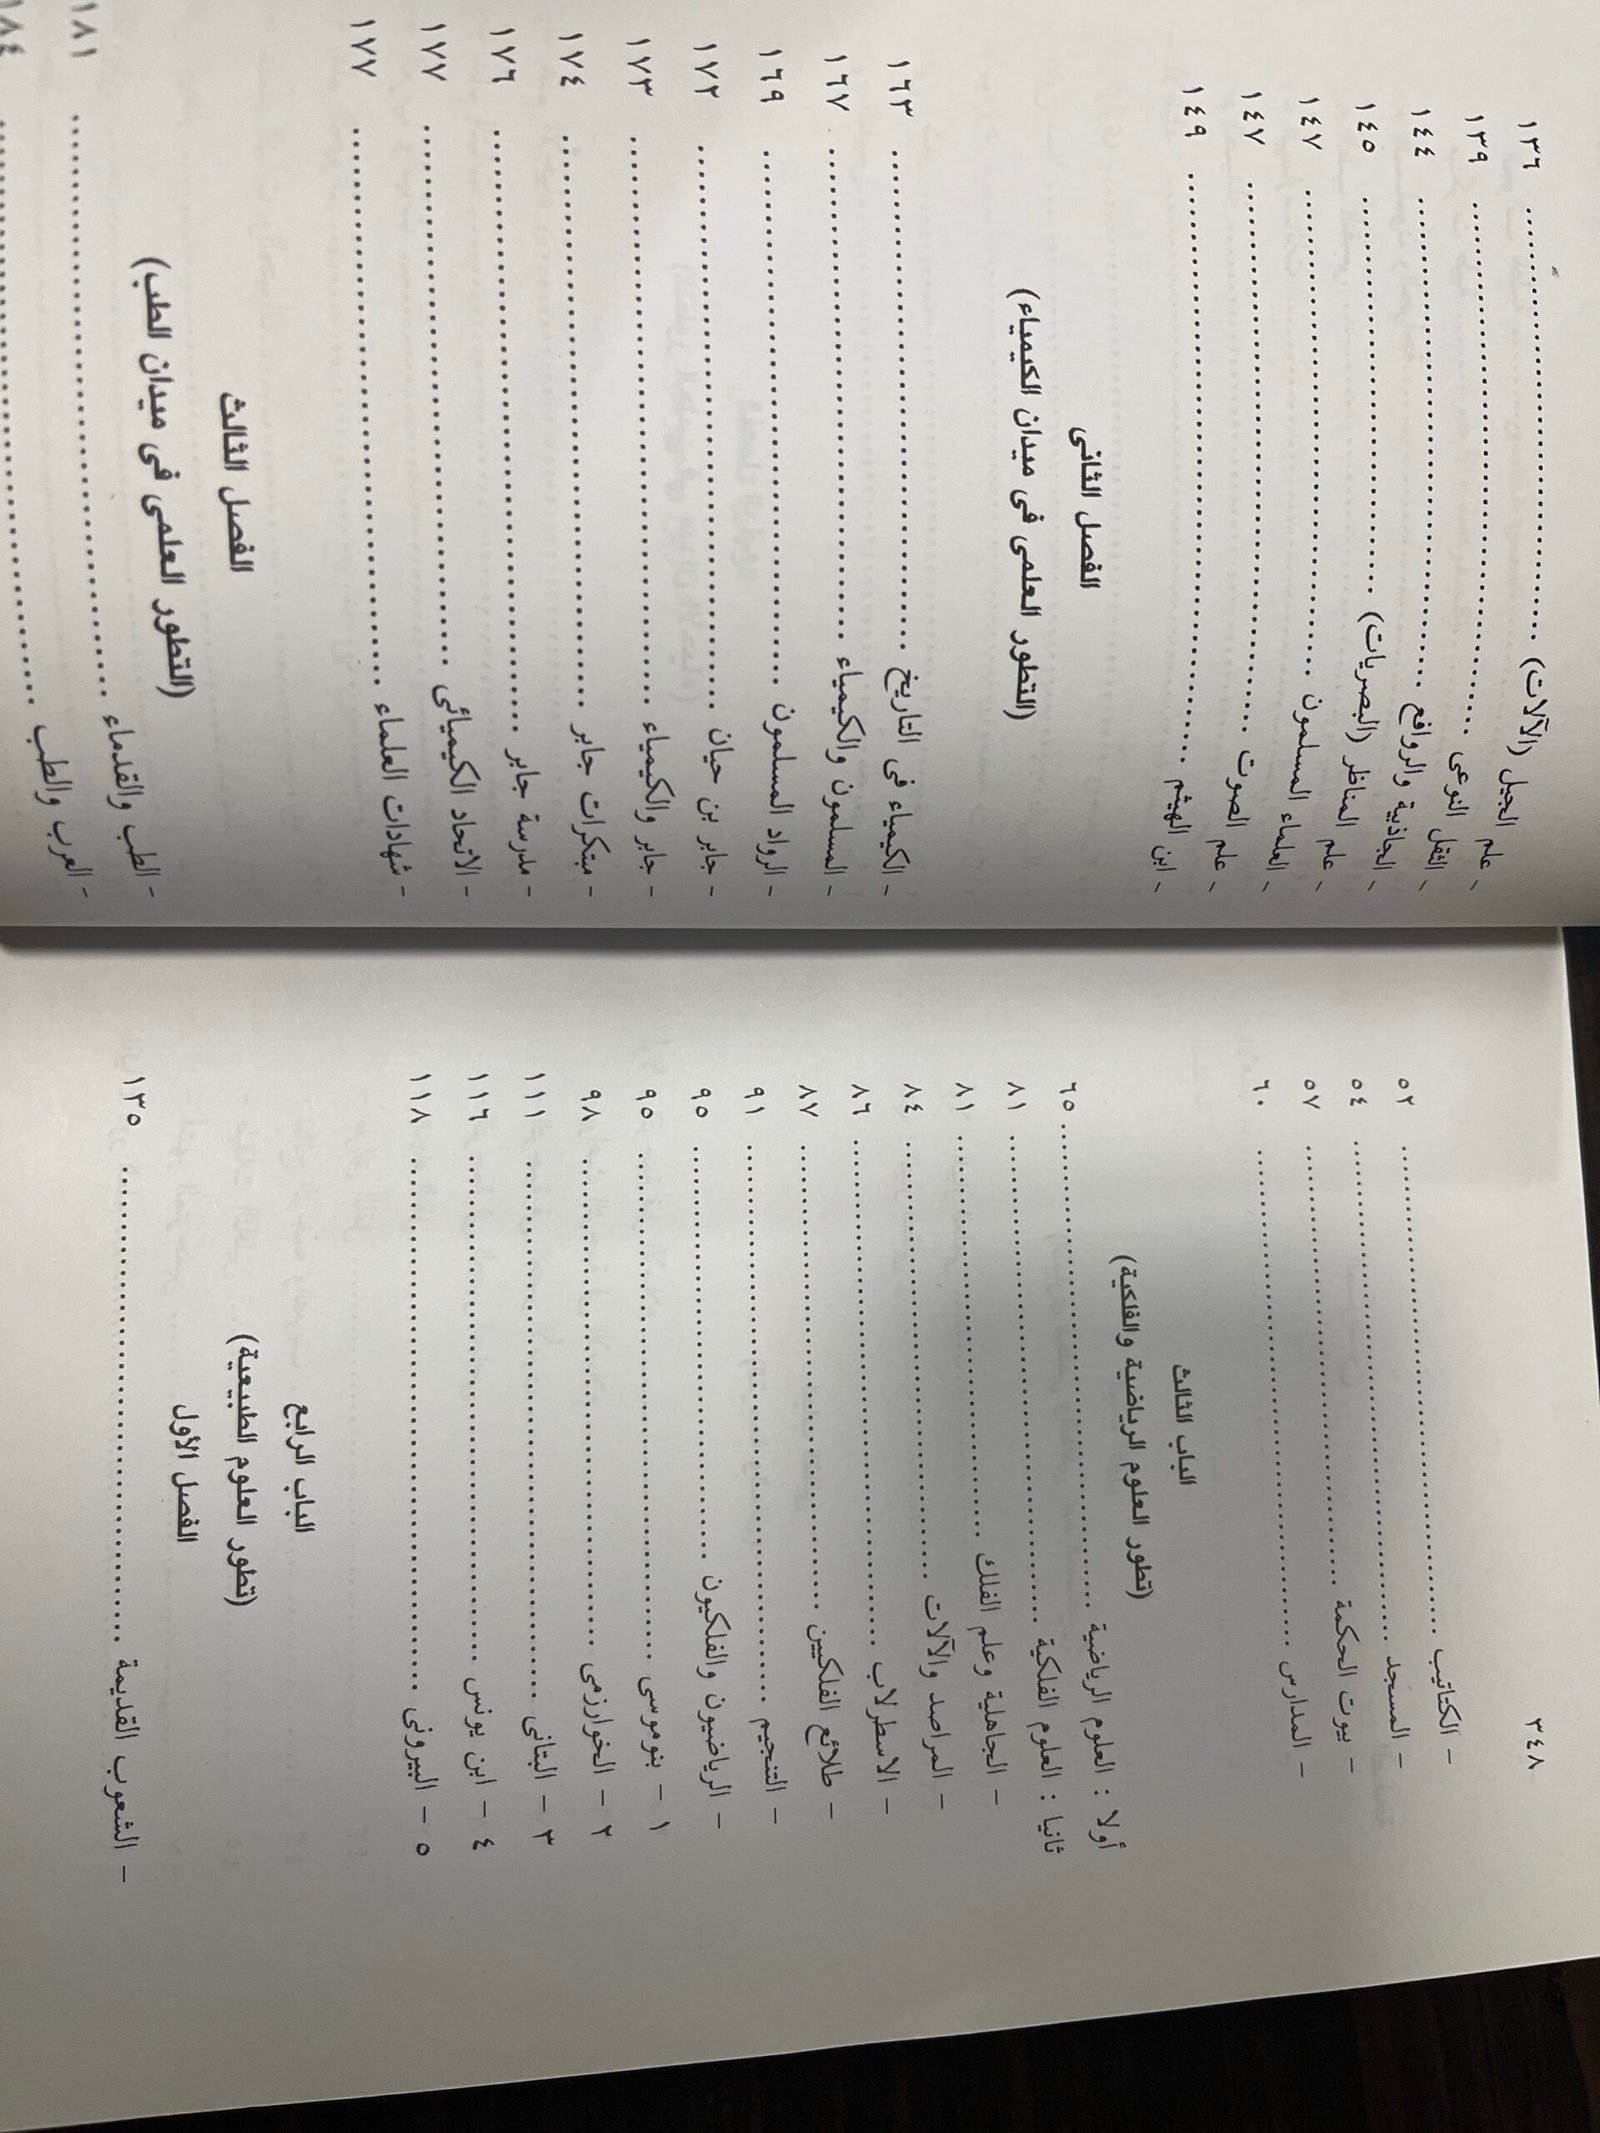 ٣٤٨
- الكتاتيب ........ ٥٢
- المسجد ........ ٥٤
- بيوت الحكمة ........ ٥٧
- المدارس ........ ٦٠
الباب الثالث
(تطور العلوم الرياضية والفلكية)
أولا : العلوم الرياضية ........ ٦٥
ثانيا : العلوم الفلكية ........ ٨١
- الجاهلية وعلم الفلك ........ ٨١
- المراصد والآلات ........ ٨٤
- الاسطرلاب ........ ٨٦
- طلائع الفلكيين ........ ٨٧
- التنجيم ........ ٩١
- الرياضيون والفلكيون ........ ٩٥
١ - بنوموسى ........ ٩٥
٢ - الخوارزمى ........ ٩٨
٣ - البتانى ........ ١١١
٤ - ابن يونس ........ ١١٦
٥ - البيرونى ........ ١١٨
الباب الرابع
(تطور العلوم الطبيعية)
الفصل الأول
- الشعوب القديمة ........ ١٣٥
- علم الحيل (الآلات) ........ ١٣٦
- الثقل النوعى ........ ١٣٩
- الجاذبية والروافع ........ ١٤٤
- علم المناظر (البصريات) ........ ١٤٥
- العلماء المسلمون ........ ١٤٧
- علم الصوت ........ ١٤٧
- ابن الهيثم ........ ١٤٩
الفصل الثانى
(التطور العلمى فى ميدان الكيمياء)
- الكيمياء فى التاريخ ........ ١٦٣
- المسلمون والكيمياء ........ ١٦٧
- الرواد المسلمون ........ ١٦٩
- جابر بن حيان ........ ١٧٢
- جابر والكيمياء ........ ١٧٣
- مبتكرات جابر ........ ١٧٤
- مدرسة جابر ........ ١٧٦
- الاتحاد الكيميائى ........ ١٧٧
- شهادات العلماء ........ ١٧٧
الفصل الثالث
(التطور العلمى فى ميدان الطب)
- الطب والقدماء ........ ١٨١
- العرب والطب ........ ١٨٤